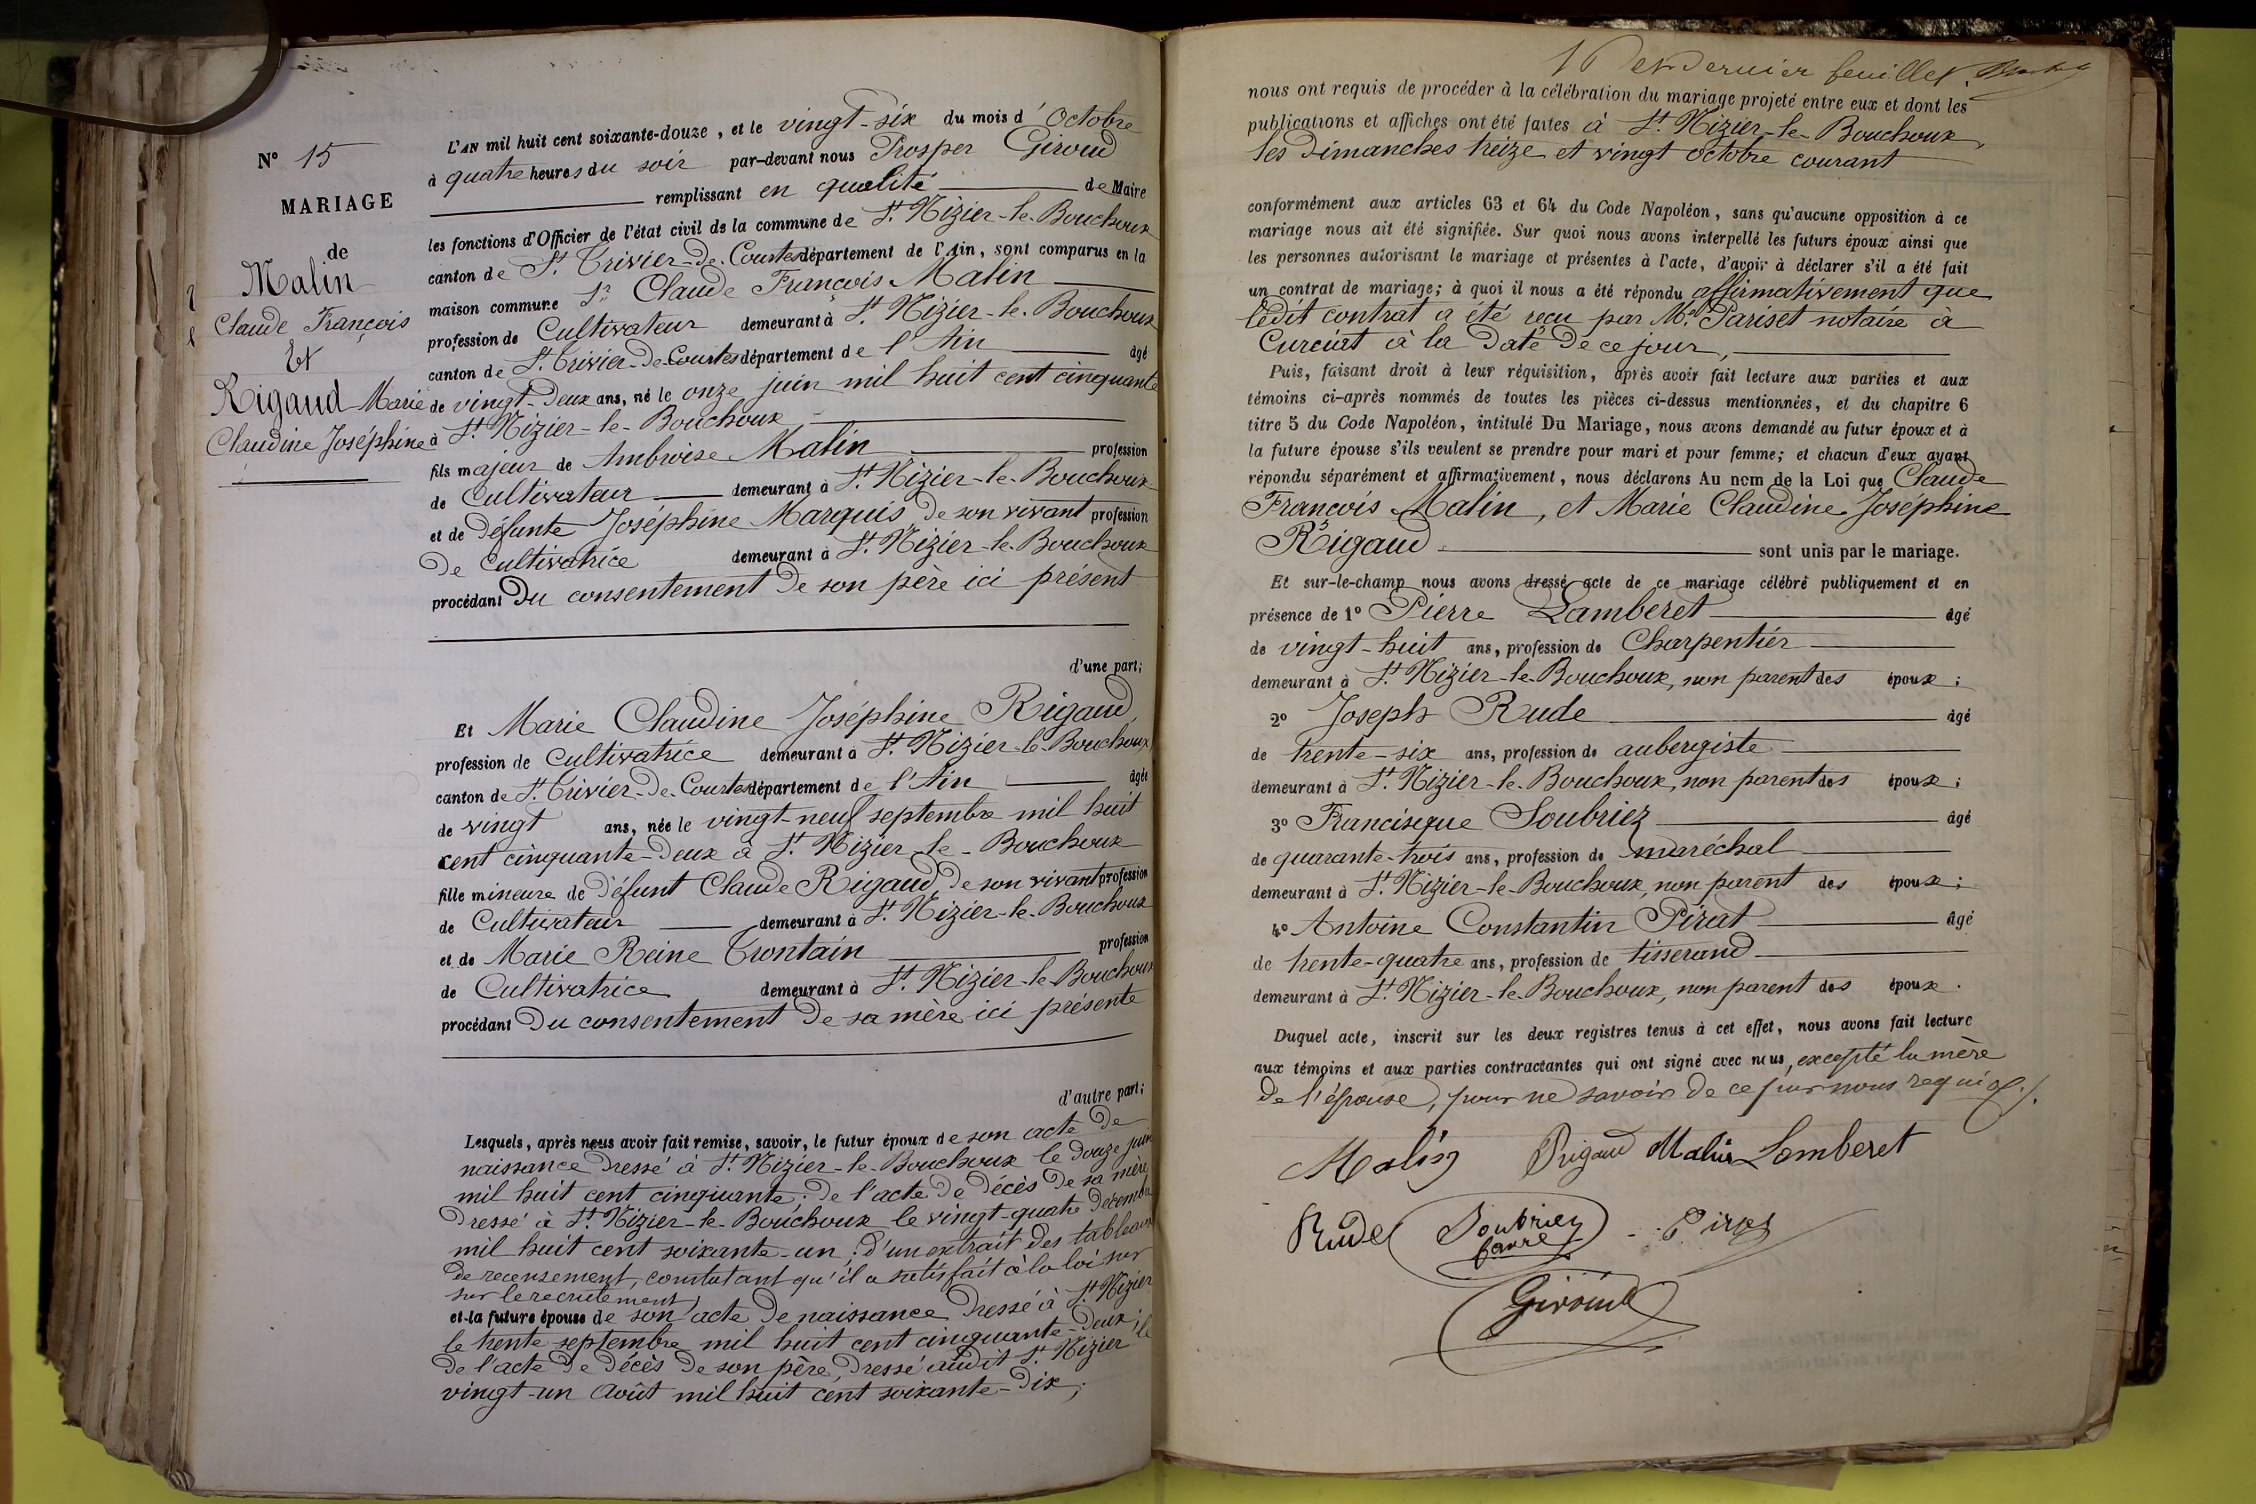 N° 15
MARIAGE
de
Malin
Claude François
Et
Rigaud Marie
Claudine Joséphine
L'AN mil huit cent soixante-douze, et le vingt-six du mois d'Octobre
à quatre heures du soir par-devant nous Prosper Giroud
remplissant en qualité de Maire
les fonctions d'Officier de l'état civil de la commune de St. Nizier-le-Bouchoux
canton de St. Trivier-de-Courtes département de l'Ain, sont comparus en la
maison commune Sr. Claude François Malin
profession de Cultivateur demeurant à St. Nizier-le-Bouchoux
canton de St. Trivier-de-Courtes département de l'Ain âgé
de vingt-deux ans, né le onze juin mil huit cent cinquante
à St. Nizier-le-Bouchoux
fils majeur de Ambroise Malin profession
de Cultivateur demeurant à St. Nizier-le-Bouchoux
et de défunte Joséphine Marquis, de son vivant profession
de cultivatrice demeurant à St. Nizier-le-Bouchoux
procédant du consentement de son père ici présent
d'une part;
Et Marie Claudine Joséphine Rigaud,
profession de Cultivatrice demeurant à St. Nizier-le-Bouchoux
canton de St. Trivier-de-Courtes département de l'Ain âgée
de vingt ans, née le vingt-neuf septembre mil huit
cent cinquante-deux à St. Nizier-le-Bouchoux
fille mineure de défunt Claude Rigaud, de son vivant profession
de Cultivateur demeurant à St. Nizier-le-Bouchoux
et de Marie Reine Trontain profession
de Cultivatrice demeurant à St. Nizier-le-Bouchoux
procédant du consentement de sa mère ici présente
d'autre part;
Lesquels, après nous avoir fait remise, savoir, le futur époux de son acte de
naissance dressé à St. Nizier-le-Bouchoux le douze juin
mil huit cent cinquante; de l'acte de décès de sa mère
dressé à St. Nizier-le-Bouchoux le vingt-quatre décembre
mil huit cent soixante-un; d'un extrait des tableaux
de recensement, constatant qu'il a satisfait à la loi sur
sur le recrutement
et la future épouse de son acte de naissance dressé à St. Nizier
le trente septembre mil huit cent cinquante-deux;
de l'acte de décès de son père, dressé audit St. Nizier le
vingt-un Août mil huit cent soixante-dix;
16 et dernier feuillet
nous ont requis de procéder à la célébration du mariage projeté entre eux et dont les
publications et affiches ont été faites à St. Nizier-le-Bouchoux,
les dimanches treize et vingt octobre courant
conformément aux articles 63 et 64 du Code Napoléon, sans qu'aucune opposition à ce
mariage nous ait été signifiée. Sur quoi nous avons interpellé les futurs époux ainsi que
les personnes autorisant le mariage et présentes à l'acte, d'avoir à déclarer s'il a été fait
un contrat de mariage; à quoi il nous a été répondu affirmativement que
ledit contrat a été reçu par Me. Pariset notaire à
Curciat à la date de ce jour,
Puis, faisant droit à leur réquisition, après avoir fait lecture aux parties et aux
témoins ci-après nommés de toutes les pièces ci-dessus mentionnées, et du chapitre 6
titre 5 du Code Napoléon, intitulé Du Mariage, nous avons demandé au futur époux et à
la future épouse s'ils veulent se prendre pour mari et pour femme; et chacun d'eux ayant
répondu séparément et affirmativement, nous déclarons Au nom de la Loi que Claude
François Malin, et Marie Claudine Joséphine
Rigaud sont unis par le mariage.
Et sur-le-champ nous avons dressé acte de ce mariage célébré publiquement et en
présence de 1° Pierre Lamberet âgé
de vingt-huit ans, profession de Charpentier
demeurant à St. Nizier-le-Bouchoux, non parent des époux;
2° Joseph Rude âgé
de trente-six ans, profession de aubergiste
demeurant à St. Nizier-le-Bouchoux, non parent des époux;
3° Francisque Soubriez âgé
de quarante-trois ans, profession de maréchal
demeurant à St. Nizier-le-Bouchoux, non parent des époux;
4° Antoine Constantin Pirat âgé
de trente-quatre ans, profession de tisserand
demeurant à St. Nizier-le-Bouchoux, non parent des époux.
Duquel acte, inscrit sur les deux registres tenus à cet effet, nous avons fait lecture
aux témoins et aux parties contractantes qui ont signé avec nous, excepté la mère
de l'épouse, pour ne savoir de ce par nous requise.
Malin Rigaud Malin Lamberet
Rude Soubriez
favre Pirat
Giroud